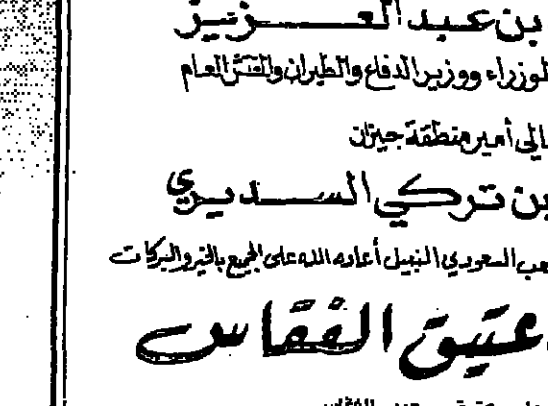 بن عبد العزيز
لوزراء ووزير الدفاع والطيران والمفتش العام
الي أمير منطقة جيزان
بن تركي السديري
السعودي النبيل أعاده الله على الجميع بالخير والبركات
عتيق الفقاس